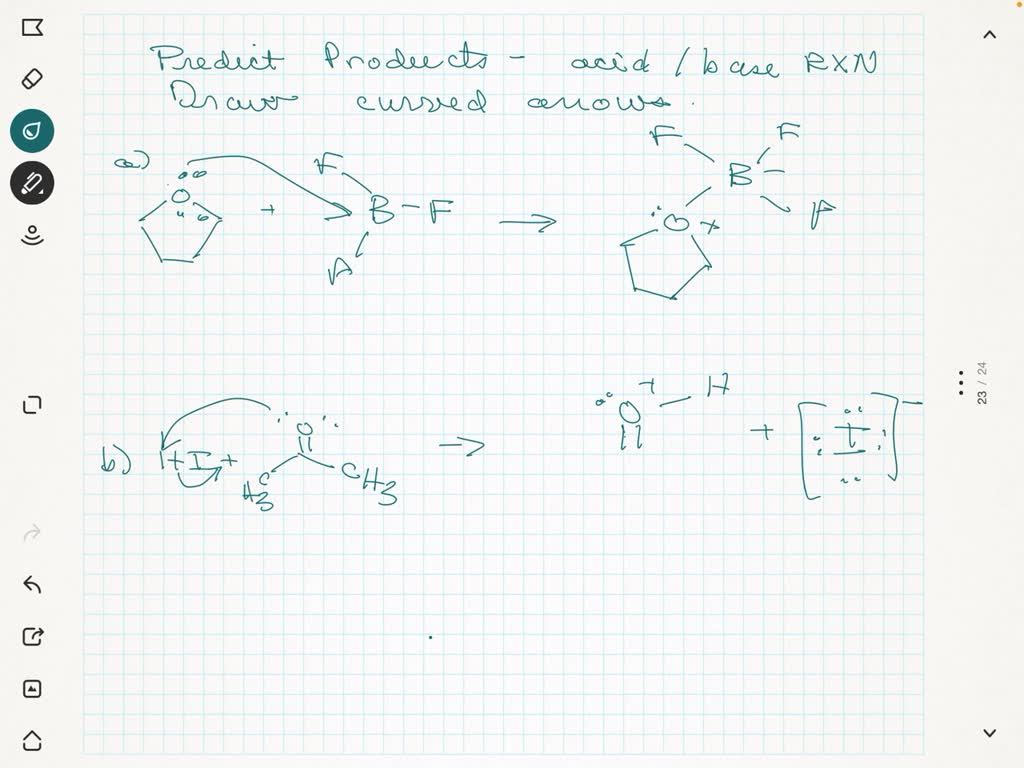 Predict Products - acid / base RXN
Draw curved arrows.
a) O + F B - F F → F F B - F O +
b) H - I + O H3C CH3 → O + - H + [ I ] -
23 / 24